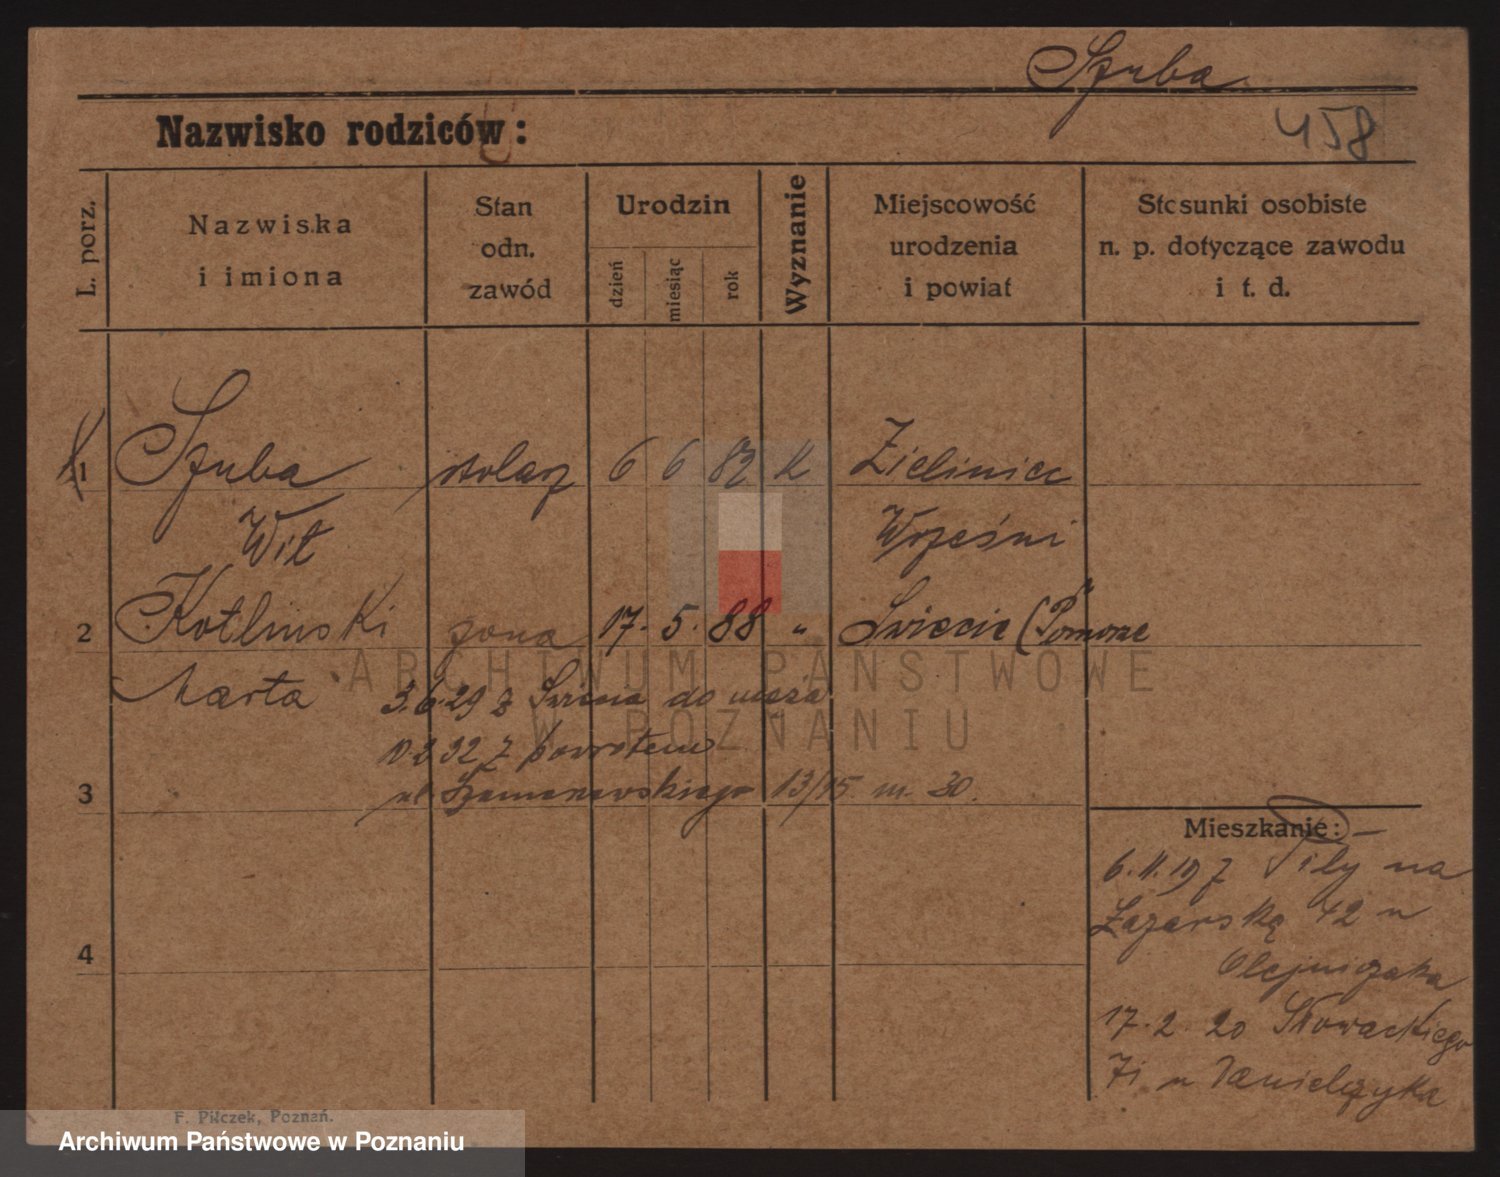 Szuba
Nazwisko rodziców:
458
L. porz.
Nazwiska
i imiona
Stan
odn.
zawód
Urodzin
dzień
miesiąc
rok
Wyznanie
Miejscowość
urodzenia
i powiat
Stosunki osobiste
n. p. dotyczące zawodu
i t. d.
1 Szuba stolarz 6 6 82 k Zieliniec
Wit Wrześni
2 Kotlinski żona 17. 5. 88 " Świecie (Pomorze
Marta
3.6.29 z Świecia do męża
32 z powrotem
ul Szamarzewskiego 13/15 m. 30.
3
Mieszkanie:
6.11.19 z Piły na
Łazarską 42 u
Olejniczaka
4
17.2.20 Słowackiego
u Danielczyka
F. Pilczek, Poznań.
ARCHIWUM PAŃSTWOWE
W POZNANIU
Archiwum Państwowe w Poznaniu